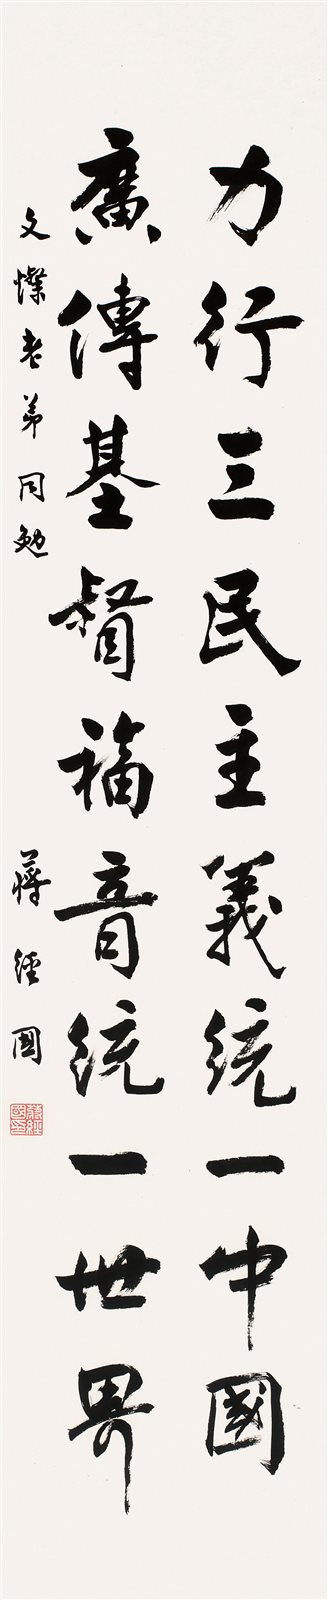 力行三民主義統一中國
廣傳基督福音統一世界
文燦老弟同勉
蔣經國
蔣經國印